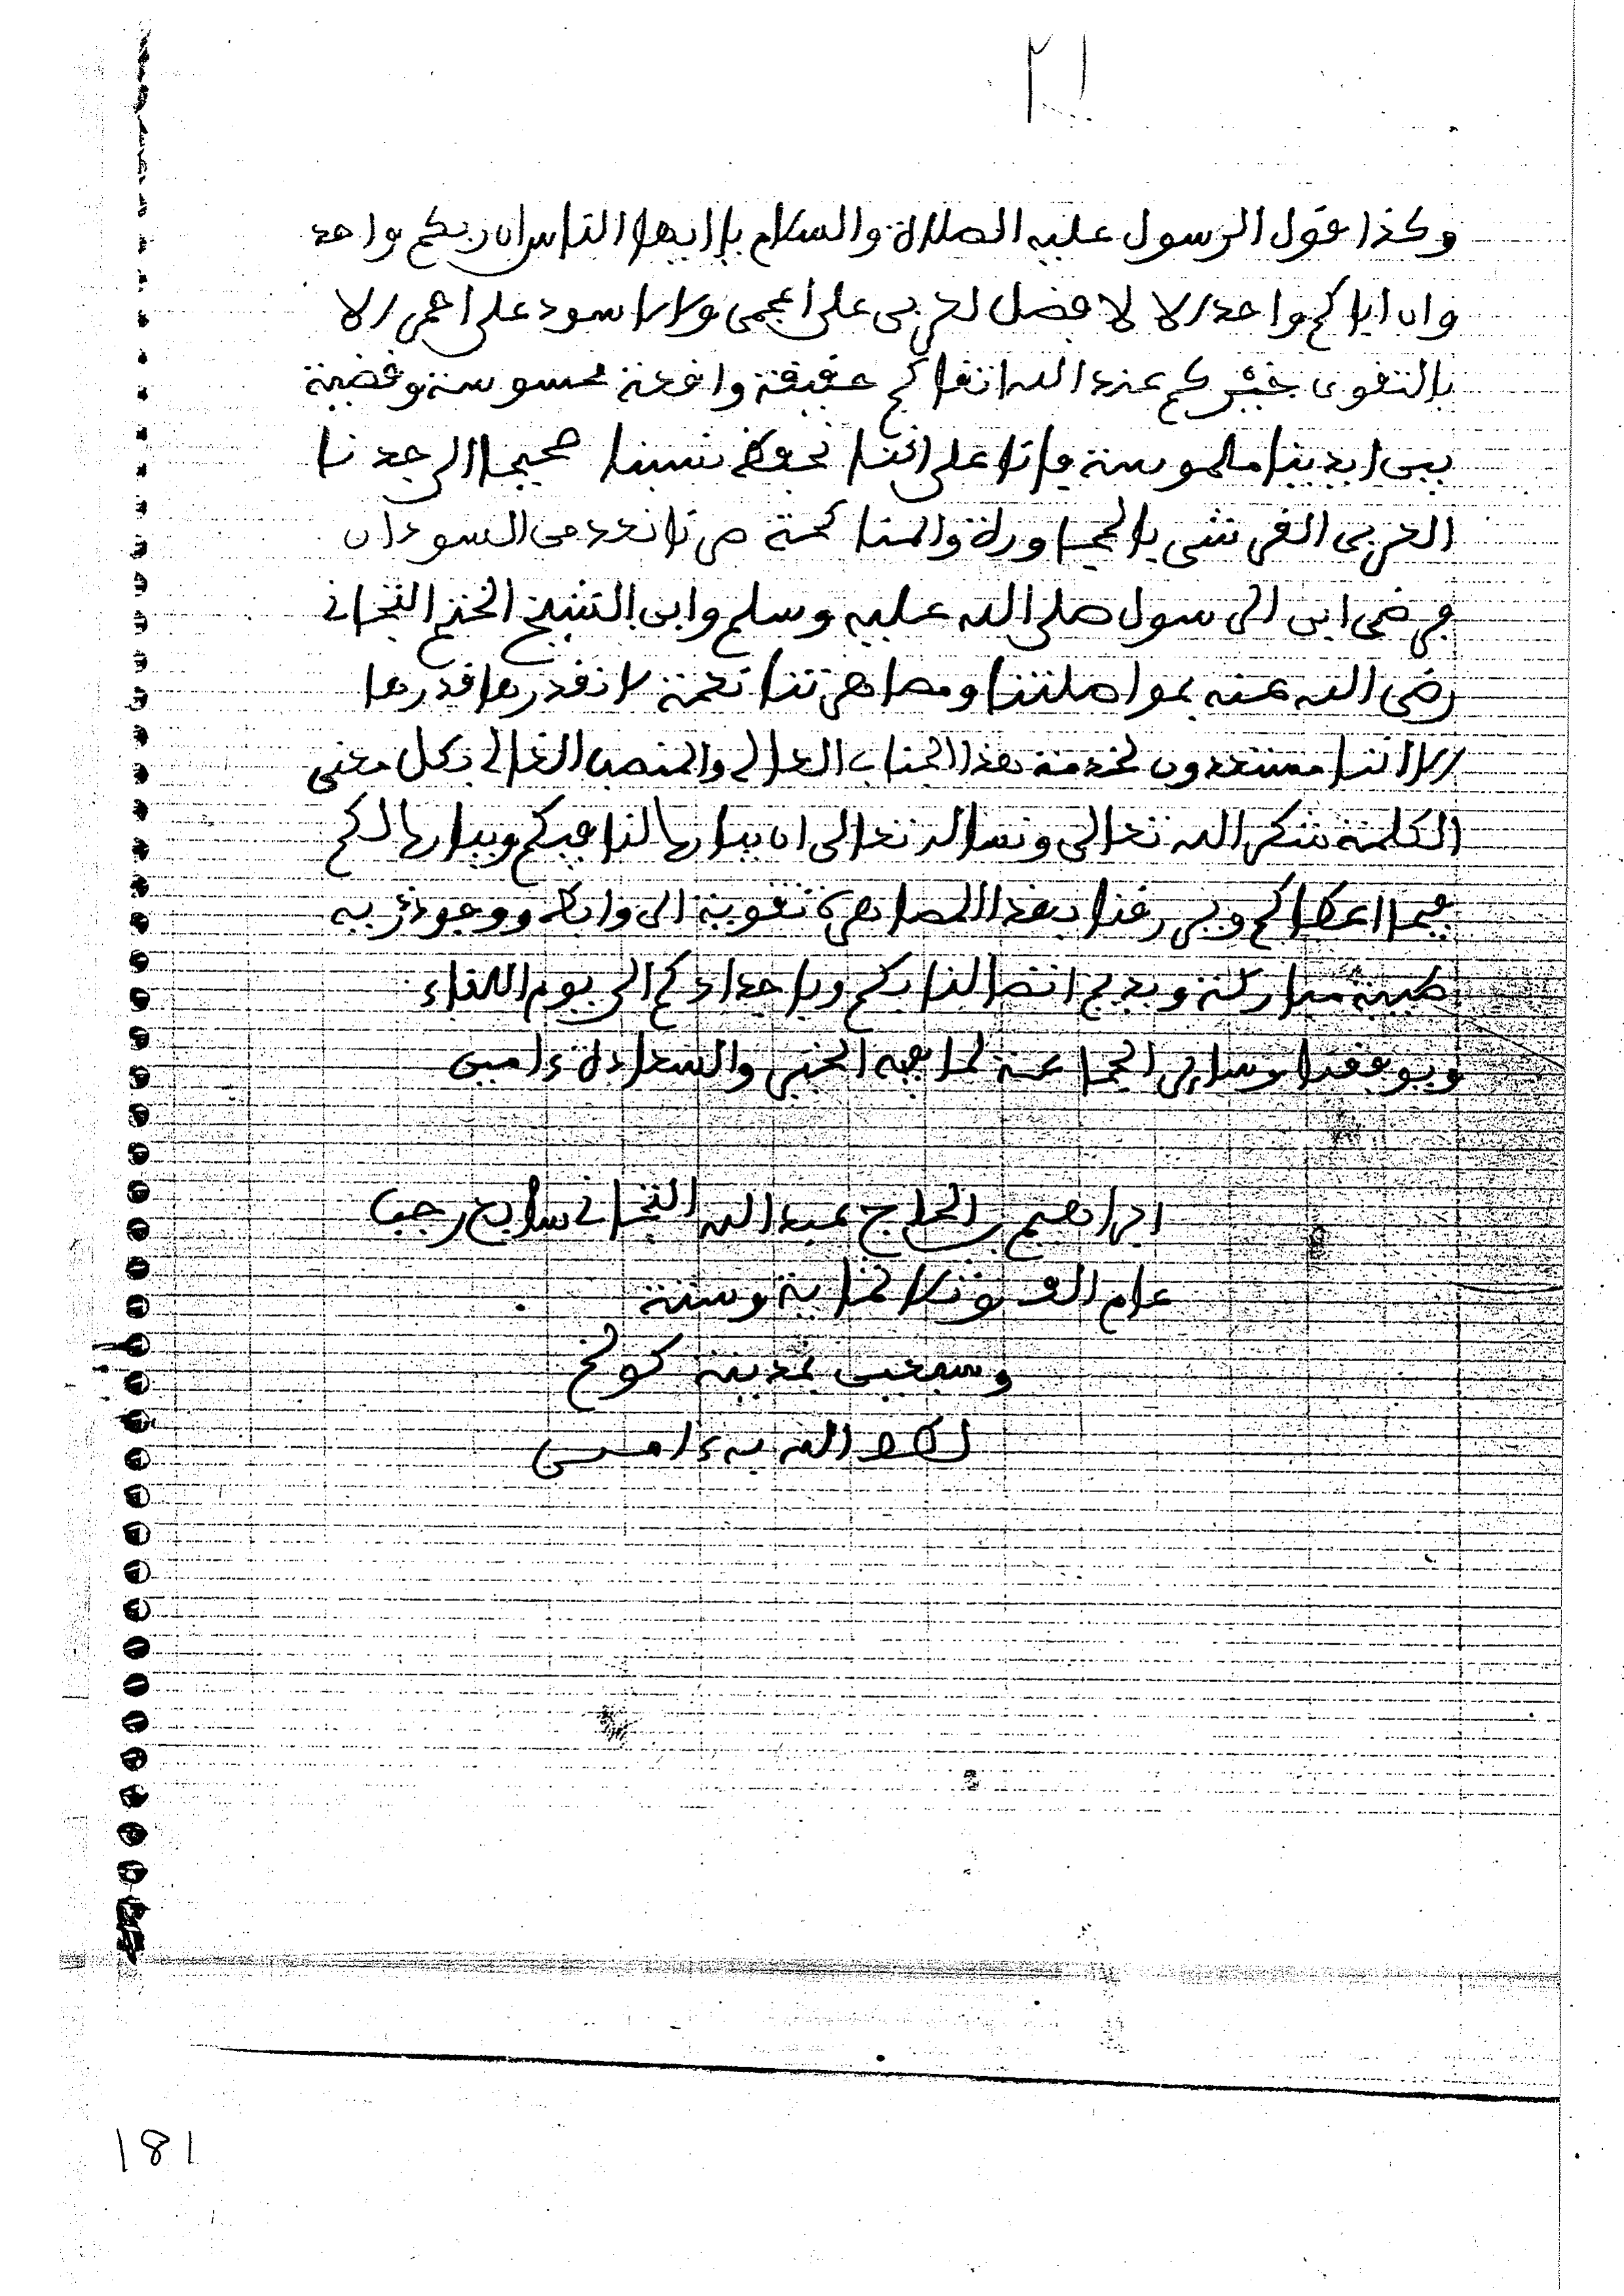 ٢١
وكذا قول الرسول عليه الصلاة والسلام يا ايها الناس ان ربكم واحد
وان اباكم واحد الا لا فضل لعربي على اعجمي ولا لاسود على احمر الا
بالتقوى خيركم عند الله اتقاكم حقيقة واقعة محسوسة وقضية
بين ايدينا ملموسة فإنا على اننا نحفظ نسبنا صحيحا الى جدنا
العربي القرشي بالمجاورة والمناكحة صرنا نعد من السودان
فرضى ابن الرسول صلى الله عليه وسلم وابن الشيخ الختم التجاني
رضي الله عنه بمواصلتنا ومصاهرتنا نعمة لا نقدر ها قدرها
الا اننا مستعدون لخدمة هذا الجناب العالي والمنصب الغالي بكل معنى
الكلمة شكر الله تعالى ونسأله تعالى ان يبارك لنا فيكم ويبارك لكم
فيما اعطاكم ويرزقنا بهذا المصاهرة تقوية الروابط ووجود ذرية
طيبة مباركة ويديم اتصالنا بكم وباجدادكم الى يوم اللقاء
ويوفقنا وسائر الجماعة لما فيه الخير والسعادة ءامين
ابراهيم بن الحاج عبد الله التجاني سابع رجب
عام الف وثلاثماية وستة
وسبعين بمدينة كولخ
لطف الله به ءامين
181